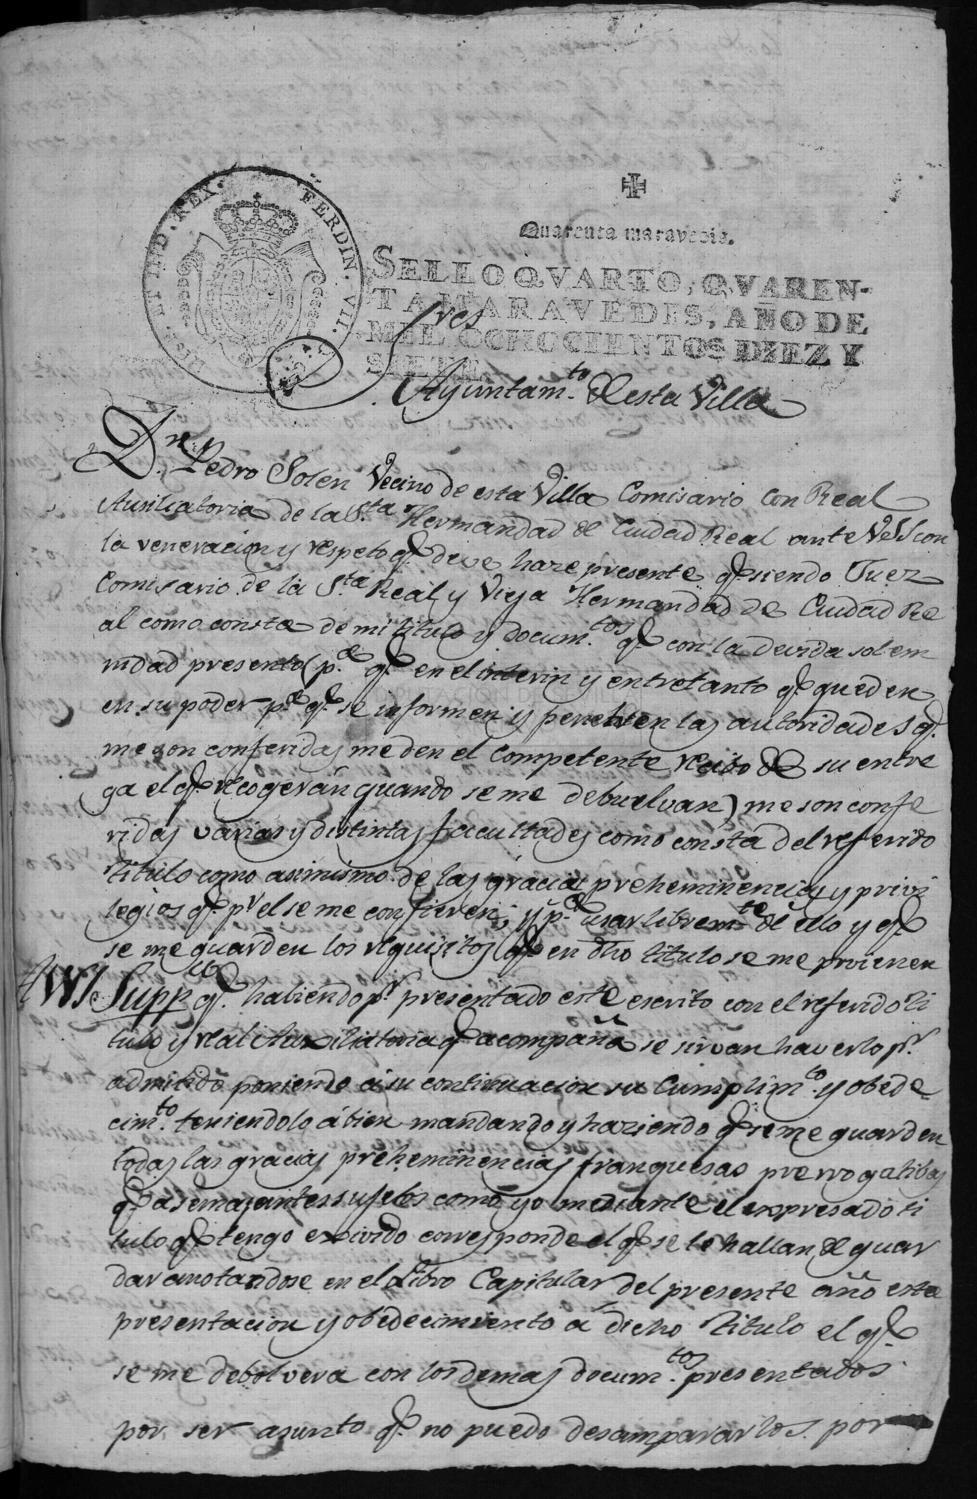 FERDIN. VII. D. G. ET IND. REX.
Quarenta maravedis.
SELLO QVARTO, QVAREN-
TA MARAVEDIS, AÑO DE
MIL OCHOCIENTOS DIEZ Y
SIETE.
Sres
Ayuntamto. de esta Villa
Dn. Pedro Solen Vecino de esta Villa Comisario con Real
Auxiliatoria de la Sta Hermandad de Ciudad Real ante VSS con
la veneracion y respeto qe. deve haze presente qe. siendo Juez
Comisario de la Sta. Real y Vieja Hermandad de Ciudad Re
al como consta de mi titulo y documtos. qe. con la devida solem
nidad presento (pa. qe. en el interin y entretanto qe. queden
en su poder pa. qe. se informen y penetren las autoridades qe.
me son conferidas me den el competente recibo de su entre
ga el qe. recogerán quando se me debuelvan) me son confe
ridas varias y distintas facultades como consta del referido
titulo como asimismo de las gracias preheminencias y privi
legios qe. pr. el se me confieren; y pa. usar libremte. de ello y qe.
se me guarden los requisitos qe. en dho titulo se me previenen
A VSS Suppco qe. habiendo pr. presentado este escrito con el referido ti
tulo y real Auxiliatoria qe. acompaña se sirvan haverlo pr.
admitido poniendo á su continuacion su Cumplimto. y obede-
cimto. teniendolo á bien mandando y haziendo qe. se me guarden
todas las gracias preheminencias franquesas prerrogatibas
qe. a semejantes sujetos como yo mediante el expresado ti
tulo qe. tengo exivido corresponde el qe. se le hallan de guar
dar anotandose en el Libro Capitular del presente año esta
presentacion y obedecimiento á dicho Titulo el qe.
se me debolvera con los demas documtos. presentados
por ser asunto qe. no puedo desampararlos. por